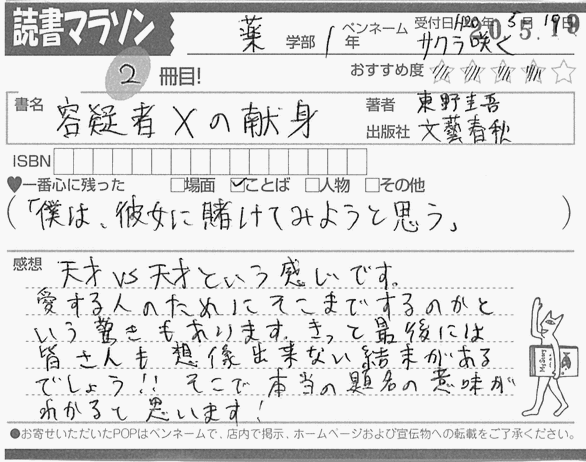 読書マラソン
薬 学部 1 年
ペンネーム サクラ咲く
受付日 H20年 5月 19日
20.5.19
2 冊目!
おすすめ度 ★★★★☆
書名 容疑者Xの献身
著者 東野圭吾
出版社 文藝春秋
ISBN
♥一番心に残った □場面 ☑ことば □人物 □その他
(「僕は、彼女に賭けてみようと思う」 )
感想 天才vs天才という感じです。
愛する人のためにそこまでするのかと
いう驚きもあります。きっと最後には
皆さんも想像出来ない結末がある
でしょう!! そこで本当の題名の意味が
わかると思います!
●お寄せいただいたPOPはペンネームで、店内で掲示、ホームページおよび宣伝物への転載をご了承ください。